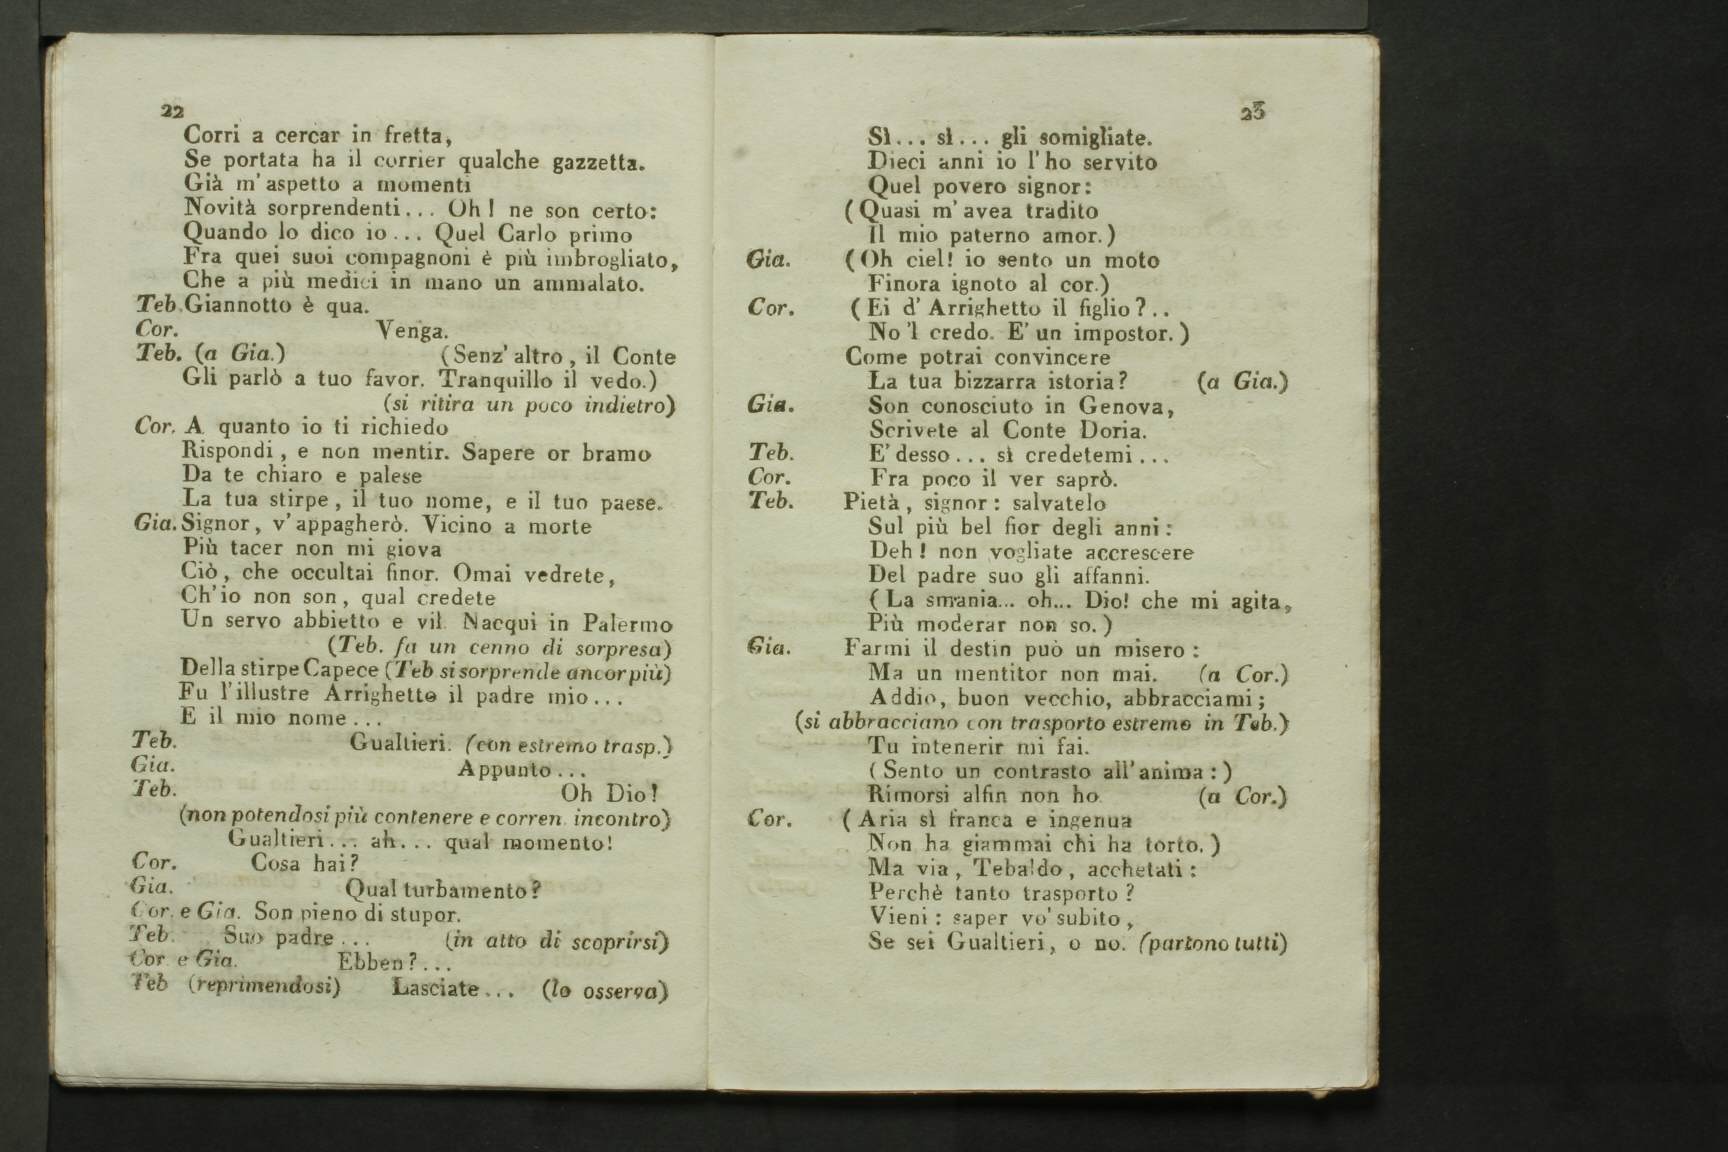 22
Corri a cercar in fretta,
Se portata ha il corrier qualche gazzetta.
Già m'aspetto a momenti
Novità sorprendenti... Oh! ne son certo:
Quando lo dico io... Quel Carlo primo
Fra quei suoi compagnoni è più imbrogliato,
Che a più medici in mano un ammalato.
Teb. Giannotto è qua.
Cor. Venga.
Teb. (a Gia.) (Senz'altro, il Conte
Gli parlò a tuo favor. Tranquillo il vedo.)
(si ritira un poco indietro)
Cor. A quanto io ti richiedo
Rispondi, e non mentir. Sapere or bramo
Da te chiaro e palese
La tua stirpe, il tuo nome, e il tuo paese.
Gia. Signor, v'appagherò. Vicino a morte
Più tacer non mi giova
Ciò, che occultai finor. Omai vedrete,
Ch'io non son, qual credete
Un servo abbietto e vil. Nacqui in Palermo
(Teb. fa un cenno di sorpresa)
Della stirpe Capece (Teb si sorprende ancor più)
Fu l'illustre Arrighetto il padre mio...
E il mio nome...
Teb. Gualtieri. (con estremo trasp.)
Gia. Appunto...
Teb. Oh Dio!
(non potendosi più contenere e corren. incontro)
Gualtieri... ah... qual momento!
Cor. Cosa hai?
Gia. Qual turbamento?
Cor. e Gia. Son pieno di stupor.
Teb. Suo padre... (in atto di scoprirsi)
Cor e Gia. Ebben?...
Teb (reprimendosi) Lasciate... (lo osserva)
23
Sì... sì... gli somigliate.
Dieci anni io l'ho servito
Quel povero signor:
(Quasi m'avea tradito
Il mio paterno amor.)
Gia. (Oh ciel! io sento un moto
Finora ignoto al cor.)
Cor. (Ei d'Arrighetto il figlio?..
No'l credo. E' un impostor.)
Come potrai convincere
La tua bizzarra istoria? (a Gia.)
Gia. Son conosciuto in Genova,
Scrivete al Conte Doria.
Teb. E' desso... sì credetemi...
Cor. Fra poco il ver saprò.
Teb. Pietà, signor: salvatelo
Sul più bel fior degli anni:
Deh! non vogliate accrescere
Del padre suo gli affanni.
(La smania... oh... Dio! che mi agita,
Più moderar non so.)
Gia. Farmi il destin può un misero:
Ma un mentitor non mai. (a Cor.)
Addio, buon vecchio, abbracciami;
(si abbracciano con trasporto estremo in Teb.)
Tu intenerir mi fai.
(Sento un contrasto all'anima:)
Rimorsi alfin non ho (a Cor.)
Cor. (Aria sì franca e ingenua
Non ha giammai chi ha torto.)
Ma via, Tebaldo, acchetati:
Perchè tanto trasporto?
Vieni: saper vo' subito,
Se sei Gualtieri, o no. (partono tutti)